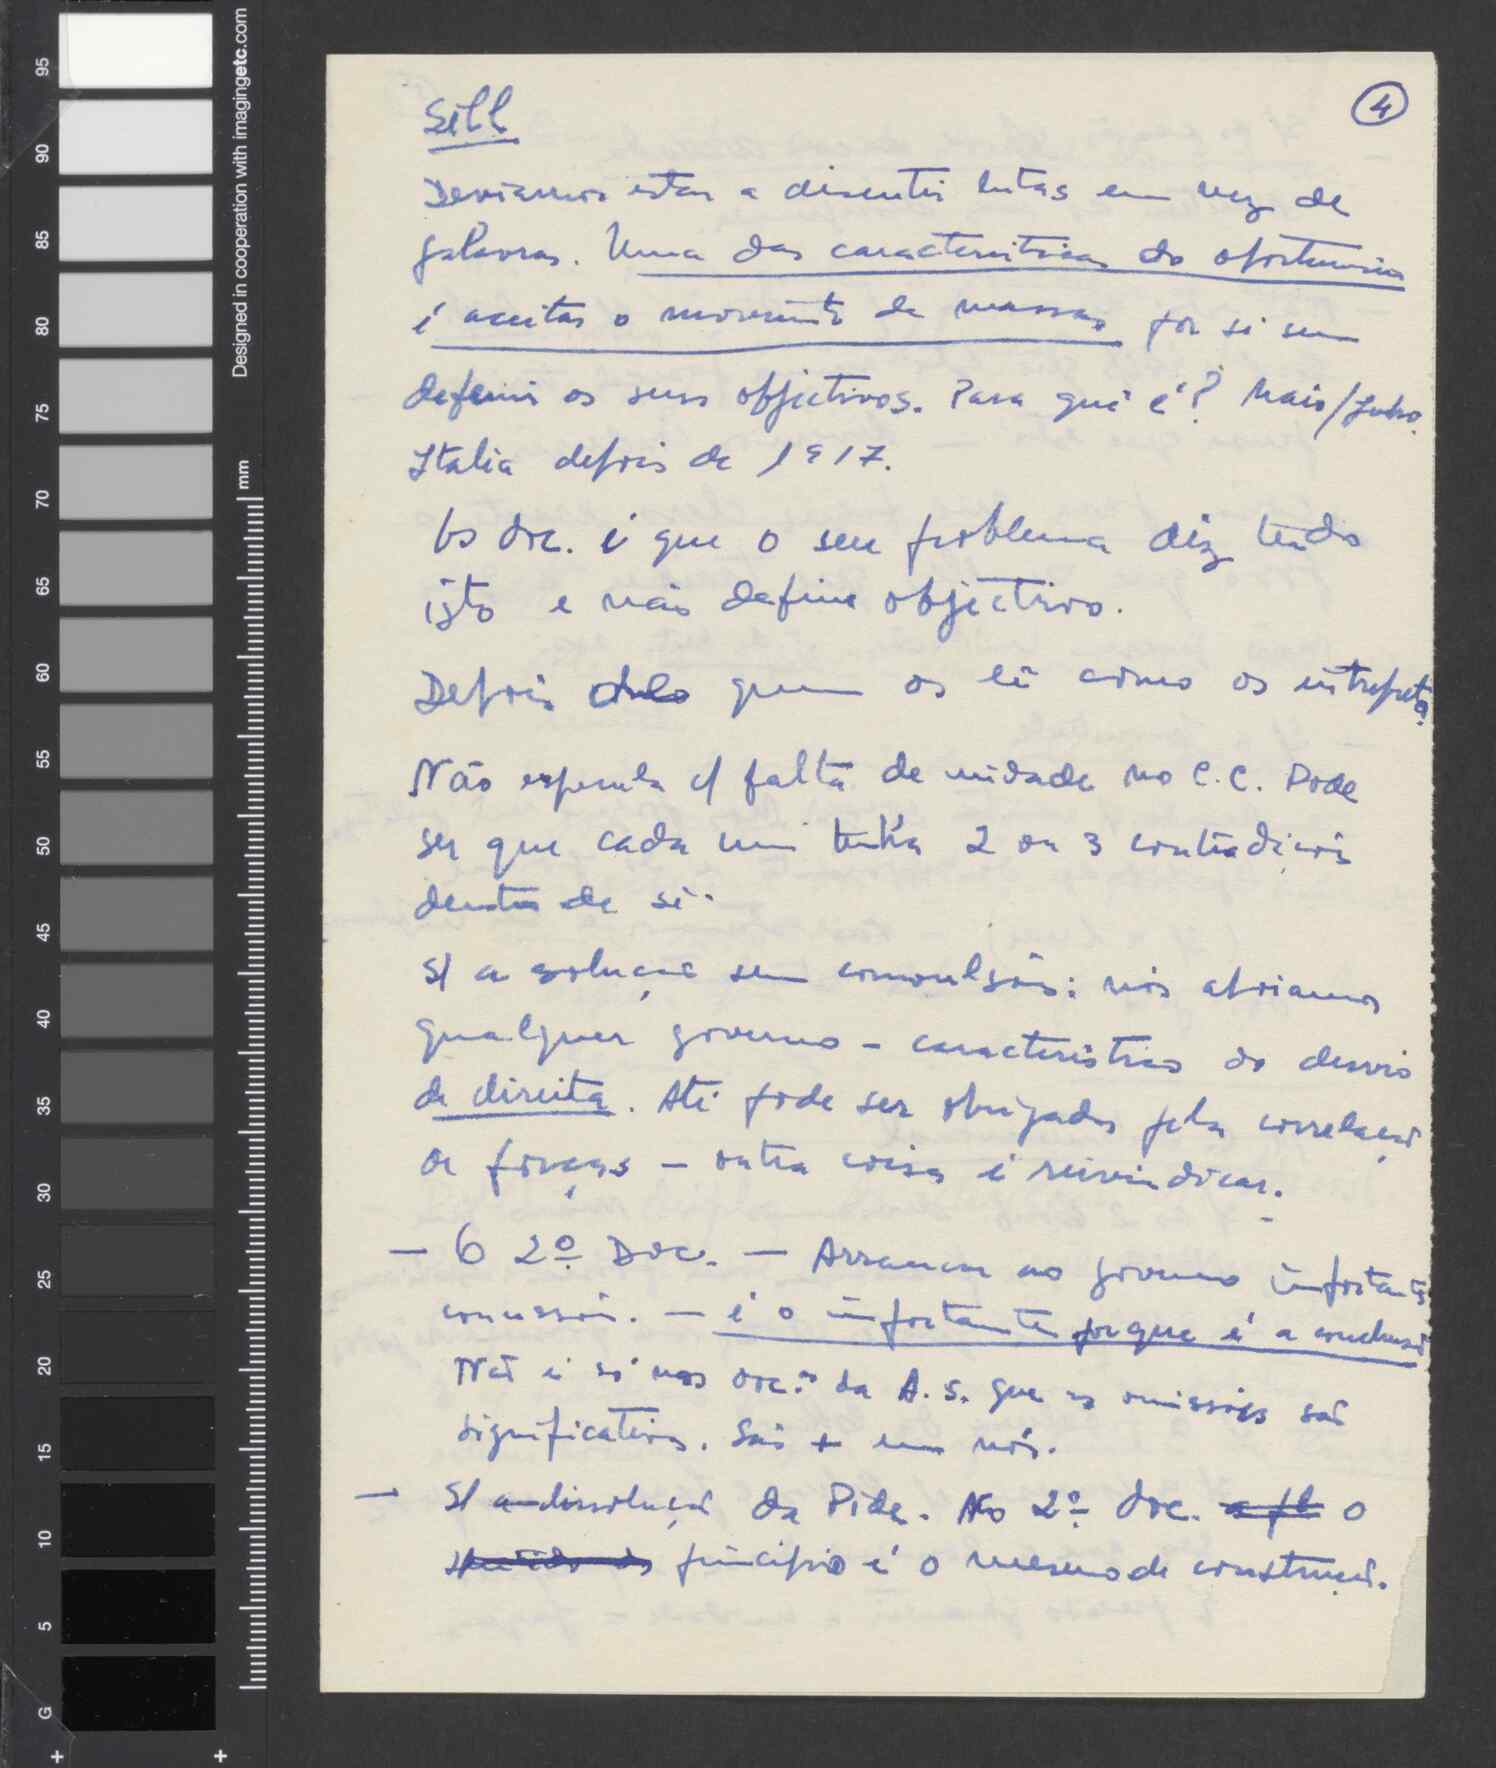 4
Deviamos estar a discutir lutas em vez de
palavras. Uma das caracteristicas do oportunismo
é aceitar o movimento de massas por si sem
definir os seus objectivos. Para quê é? Maio/Junho.
Italia depois de 1917.
doc. é que o seu problema diz tudo
isto e não define objectivo.
Depois quem os lê como os interpreta.
Não especula c/ falta de unidade no C.C. Pode
ser que cada um tenha 2 ou 3 contradições
dentro de si.
S/ a solução sem convulsões: nós apoiamos
qualquer governo - caracteristico do desvio
de direita. Até pode ser obrigados pela correlação
de forças - outra coisa é reivindicar.
- O 2º Doc. - Arrancar ao governo importantes
concessões. - é o importante porque é a conclusão
Não é só nos doc.os da A.S. que as omissões são
significativas. São + em nós.
- S/ a dissolução da Pide. No 2º doc. o
principio é o mesmo de construção.
95
90
85
80
75
70
65
60
55
50
45
40
35
30
25
20
15
10
5
G
mm
Designed in cooperation with imagingetc.com